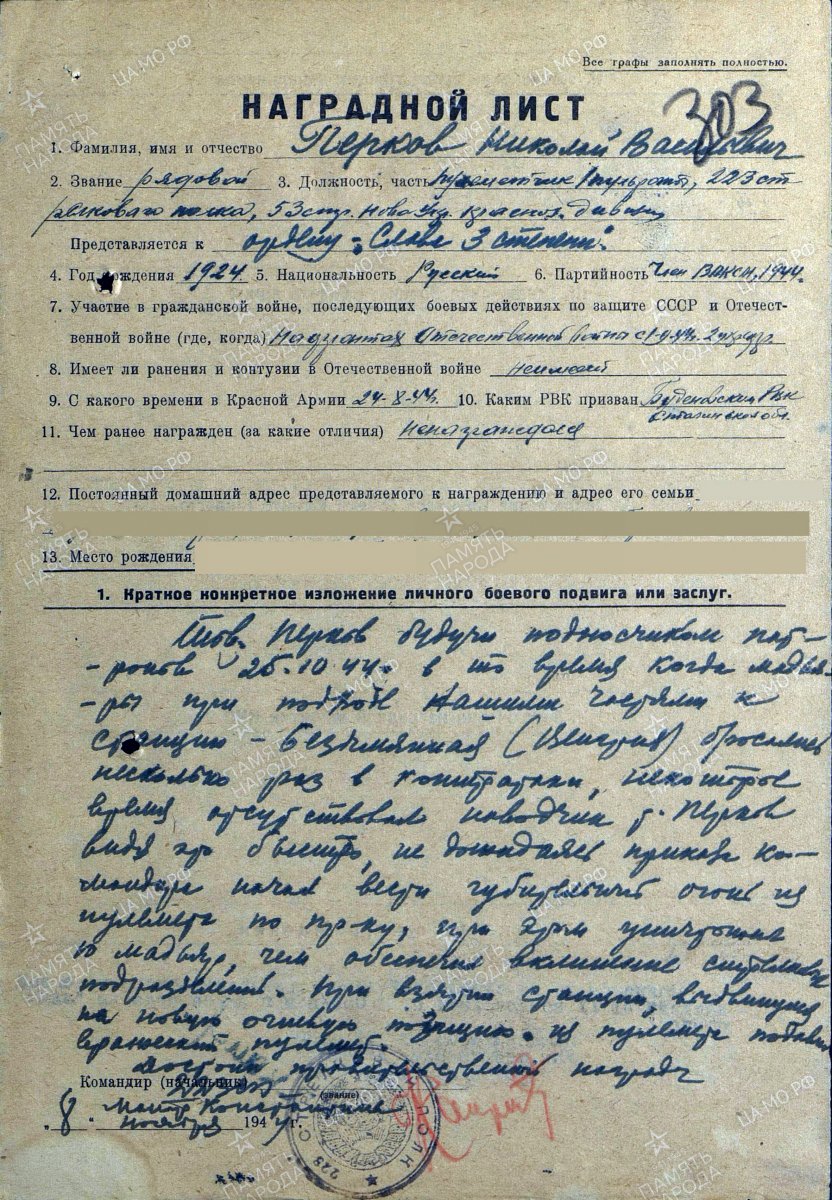 Все графы заполнять полностью.
303
НАГРАДНОЙ ЛИСТ
1. Фамилия, имя и отчество Перков Николай Васильевич
2. Звание рядовой 3. Должность, часть пулеметчик 1 пульроты, 223 ст
релкового полка, 53 стр. Ново Укр. Красноз. дивизии
Представляется к ордену "Слава 3 степени".
4. Год рождения 1924. 5. Национальность Русский 6. Партийность Член ВЛКСМ, 1944.
7. Участие в гражданской войне, последующих боевых действиях по защите СССР и Отечест-
венной войне (где, когда) На фронтах Отечественной войны с 1-9-44. 2 укр. фр.
8. Имеет ли ранения и контузии в Отечественной войне неимеет
9. С какого времени в Красной Армии 24-8-44. 10. Каким РВК призван Буденовским РВК
Сталинской обл.
11. Чем ранее награжден (за какие отличия) Ненаграждался
12. Постоянный домашний адрес представляемого к награждению и адрес его семьи
13. Место рождения
1. Краткое конкретное изложение личного боевого подвига или заслуг.
Тов. Перков будучи подносчиком пат-
-ронов 25.10.44. в то время когда мадья-
-ры при подходе нашими частями к
станции - Безымянная (Венгрия) бросались
несколько раз в контратаки, некоторое
время отсутствовал наводчик т. Перков
видя это быстро, не дожидаясь приказа ко-
мандира начал вести губительный огонь из
пулемета по пр-ку, при этом уничтожил
10 мадьяр, чем обеспечил вклинение стрелковых
подразделений. При взятии станции, выдвинулся
на новую огневую позицию. из пулемета подавил
вражеский пулемет.
Достоин правительственной награды
Командир (начальник)
(звание)
"8" ноября 1944 г.
майор
223 СТРЕЛКОВЫЙ ПОЛК
ПАМЯТЬ НАРОДА
ЦА МО.РФ